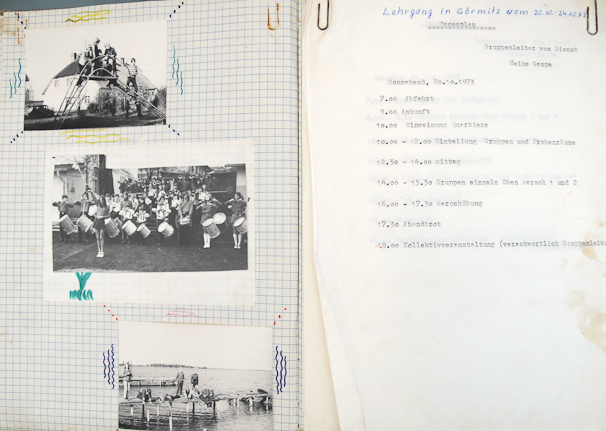 Lehrgang in Görmitz vom 20.10.-24.10.73
Tagesplan
Gruppenleiter vom Dienst
Heike Sempe
Sonnabend, 20.10.1973
7.00 Abfahrt
9.00 Ankunft
10.00 Einweisung Quartiere
10.00 - 12.00 Einteilung Gruppen und Probenräume
12.30 - 14.00 Mittag
14.00 - 15.30 Gruppen einzeln üben Marsch 1 und 2
16.00 - 17.30 Marschübung
17.30 Abendbrot
19.00 Kollektivveranstaltung (verantwortlich Gruppenleite